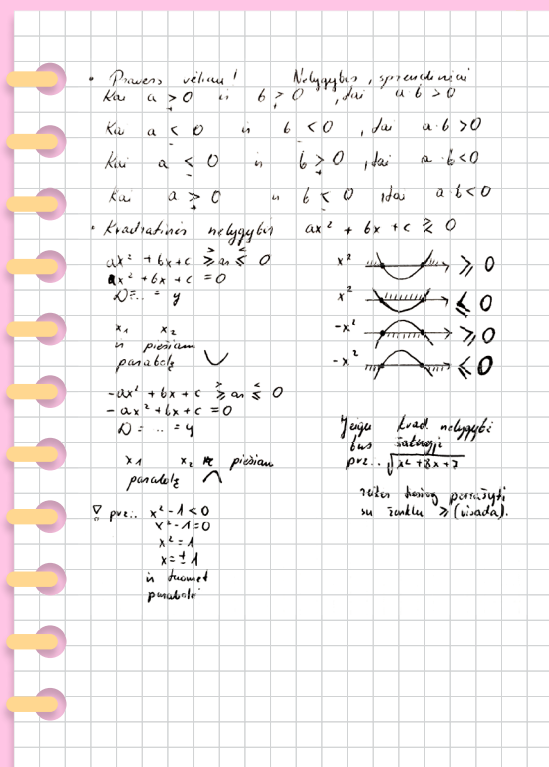 Nelygybės, sprendiniai
Kai a > 0 ir b > 0, tai a·b > 0
+ +
Kai a < 0 ir b < 0, tai a·b > 0
- -
Kai a < 0 ir b > 0, tai a·b < 0
- +
Kai a > 0 ir b < 0, tai a·b < 0
+ -
• Kvadratinės nelygybės ax² + bx + c ≷ 0
ax² + bx + c ⩾ ar ⩽ 0
ax² + bx + c = 0
D = .. = y
x₁ x₂
ir piešiam
parabolę
-ax² + bx + c ⩾ ar ⩽ 0
-ax² + bx + c = 0
D = .. = y
x₁ x₂ piešiam
parabolę
pvz.: x² - 1 < 0
x² - 1 = 0
x² = 1
x = ± 1
ir tuomet
parabolė
x² ⩾ 0
x² ⩽ 0
-x² ⩾ 0
-x² ⩽ 0
Jeigu kvad. nelygybė
bus šaknyje
pvz.. √x² + 8x + 7
reikės tiesiog parašyti
su ženklu ⩾ (visada).